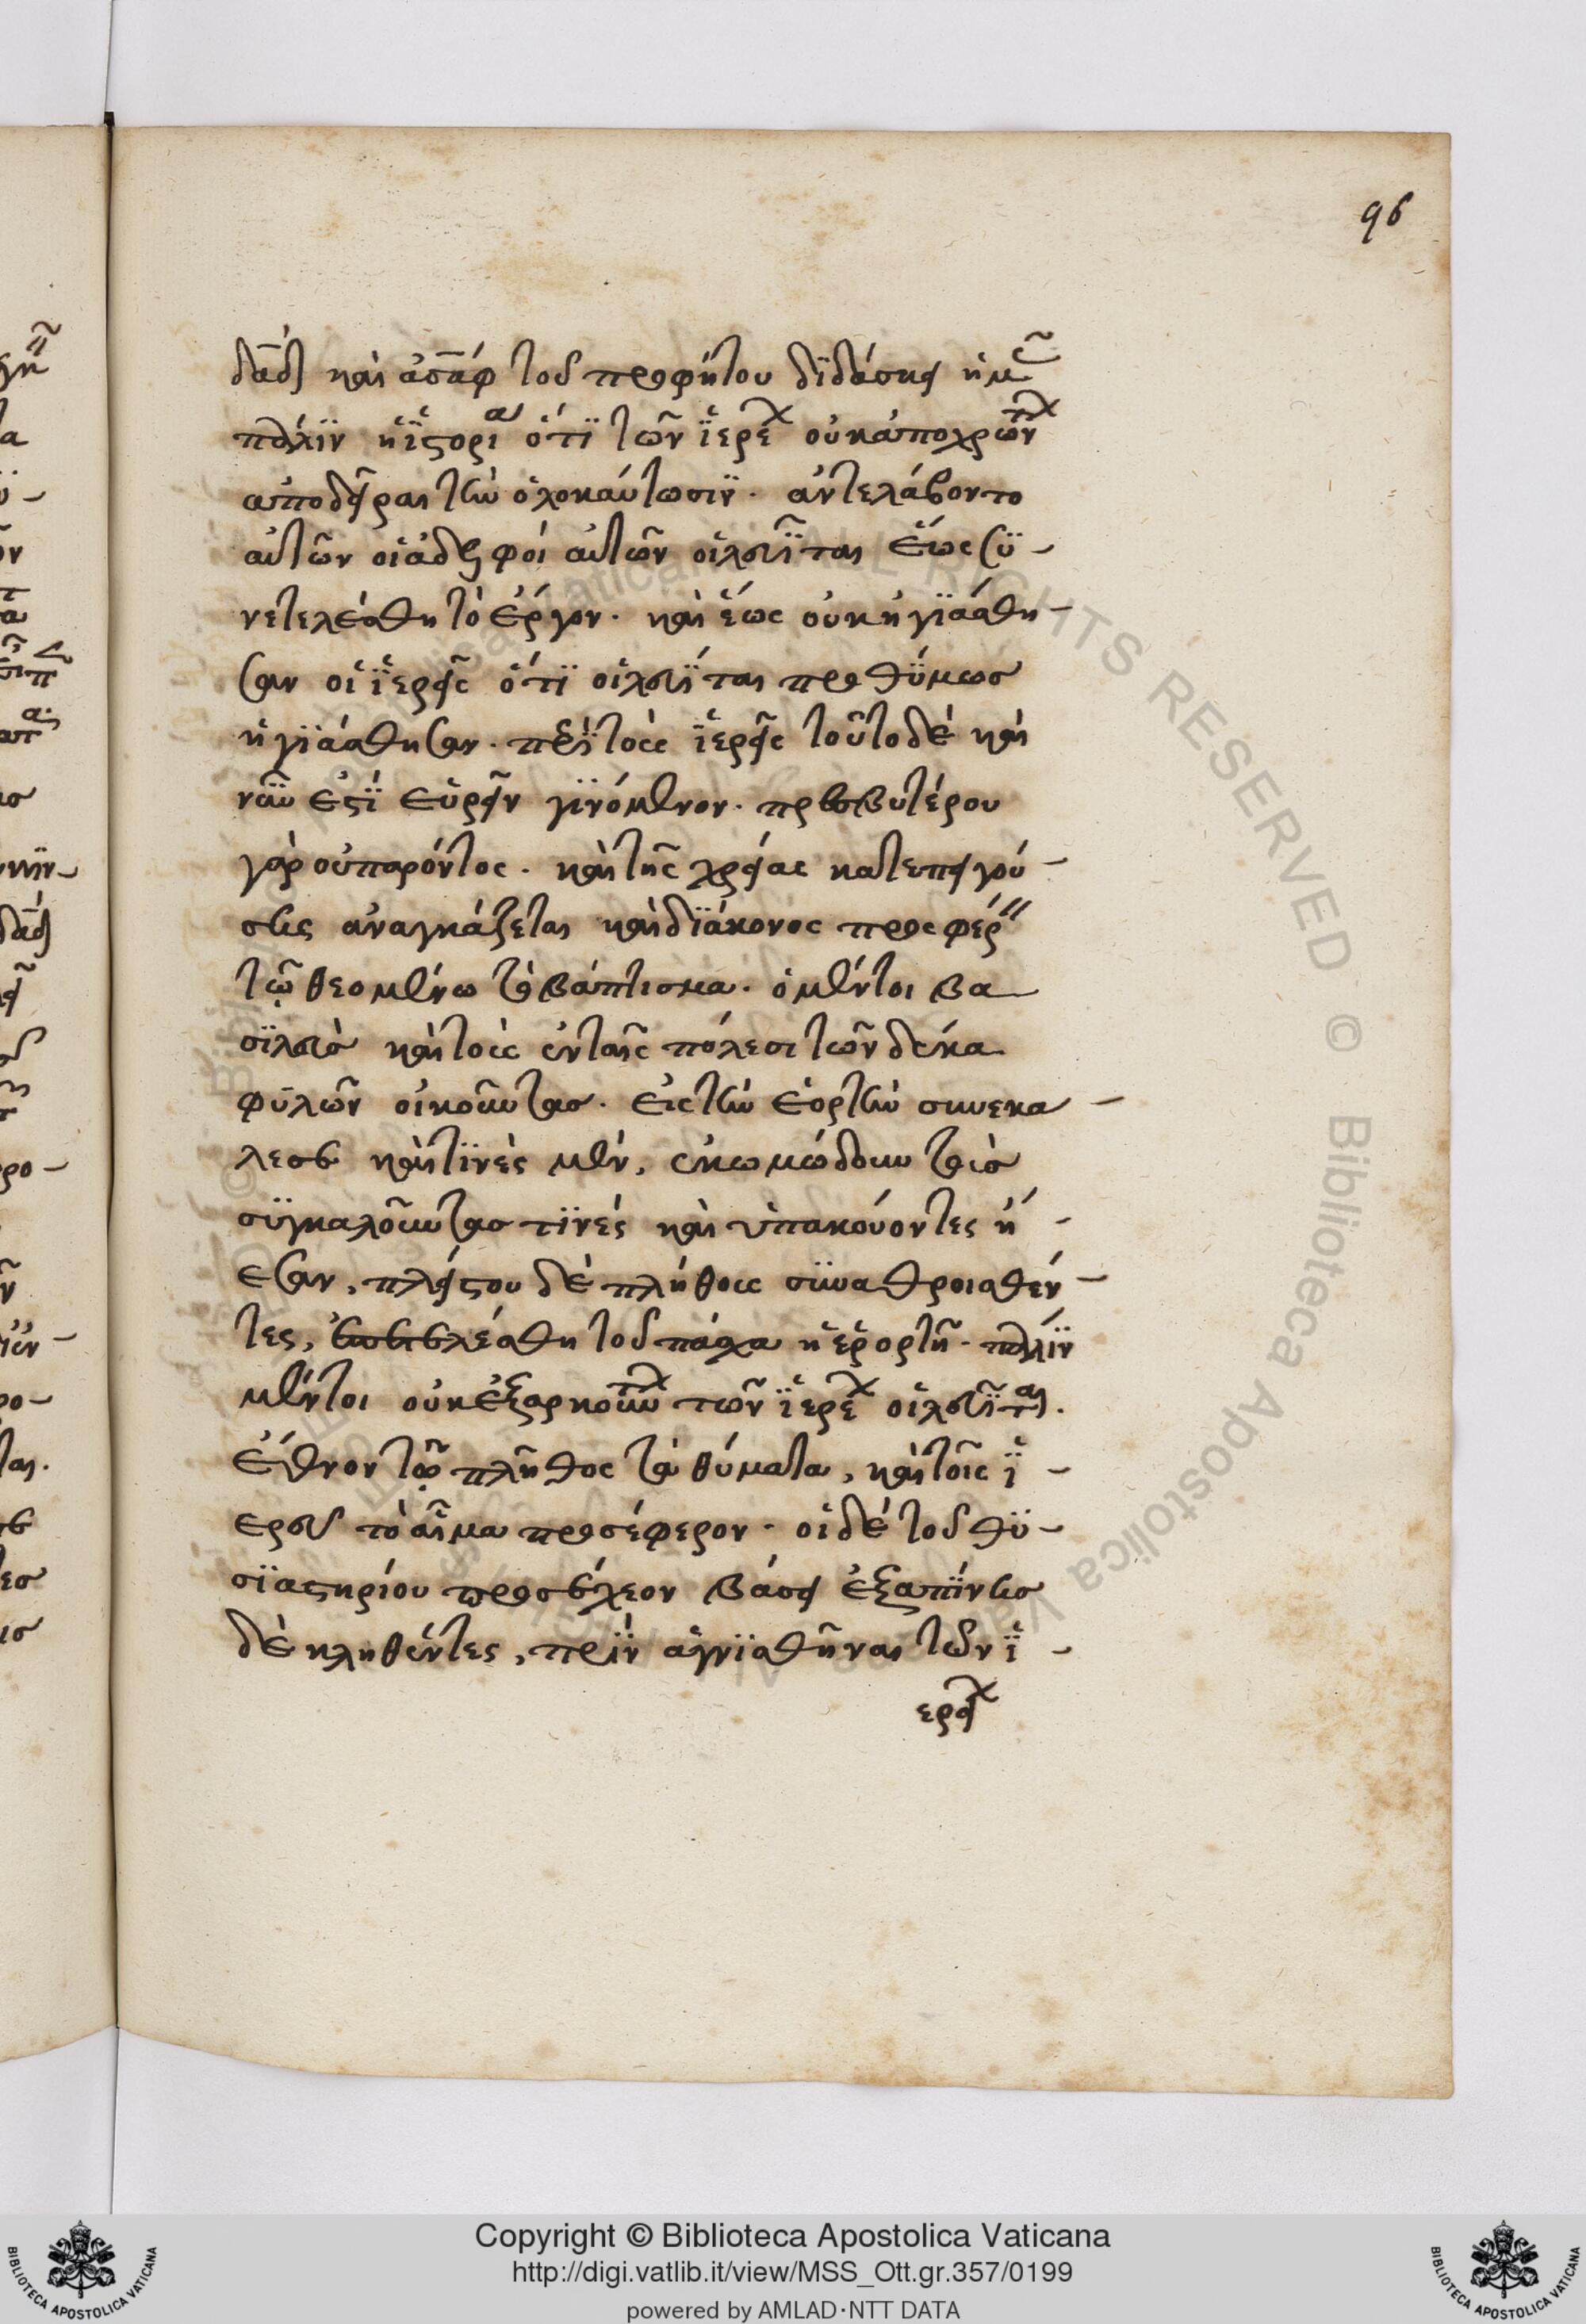 96
δᾱδ καὶ ἀσὰφ τοῦ προφήτου διδάσκει ἡμᾶς
πάλιν ἡ ἱστορία ὅτι τῶν ἱερέων οὐκ ἀποχρώντων
ἀποδεῖραι τὴν ὁλοκαύτωσιν. ἀντελάβοντο
αὐτῶν οἱ ἀδελφοὶ αὐτῶν οἱ λευῖται ἕως συ-
νετελέσθη τὸ ἔργον. καὶ ἕως οὐκ ἡγιάσθη-
σαν οἱ ἱερεῖς ὅτι οἱ λευῖται προθύμως
ἡγιάσθησαν. παρὰ τοὺς ἱερεῖς τοῦτο δὲ καὶ
νῦν ἔστι εὑρεῖν γινόμενον. πρεσβυτέρου
γὰρ οὐ παρόντος. καὶ τῆς χρείας κατεπειγού-
σης ἀναγκάζεται καὶ διάκονος προσφέρειν
τῷ θεομένω τὸ βάπτισμα. ὁ μέντοι βα
σιλεὺς καὶ τοὺς ἐν ταῖς πόλεσι τῶν δέκα
φυλῶν οἰκοῦντας. εἰς τὴν ἑορτὴν συνεκα-
λεσε καὶ τινὲς μὲν, ἐκωμώδουν τοὺς
συγκαλοῦντας τινές καὶ ὑπακούοντες ἤ-
εσαν, πλείστου δὲ πλήθους συναθροισθέν-
τες, ἐπετελέσθη τοῦ πάσχα ἡ ἑορτή. πάλιν
μέντοι οὐκ ἐξαρκούντων τῶν ἱερέων οἱ λευῖται.
ἔθυον τῷ πλῆθος τὰ θύματα, καὶ τοῖς ἱ-
ερεῦσι τὸ αἷμα προσέφερον. οἱ δὲ τοῦ θυ-
σιαστηρίου προσέχεον βάσει ἐξαπίνης
δὲ κληθέντες, πρὶν ἁγνισθῆναι τῶν ἱ-
ερείων
Copyright © Biblioteca Apostolica Vaticana
http://digi.vatlib.it/view/MSS_Ott.gr.357/0199
powered by AMLAD·NTT DATA